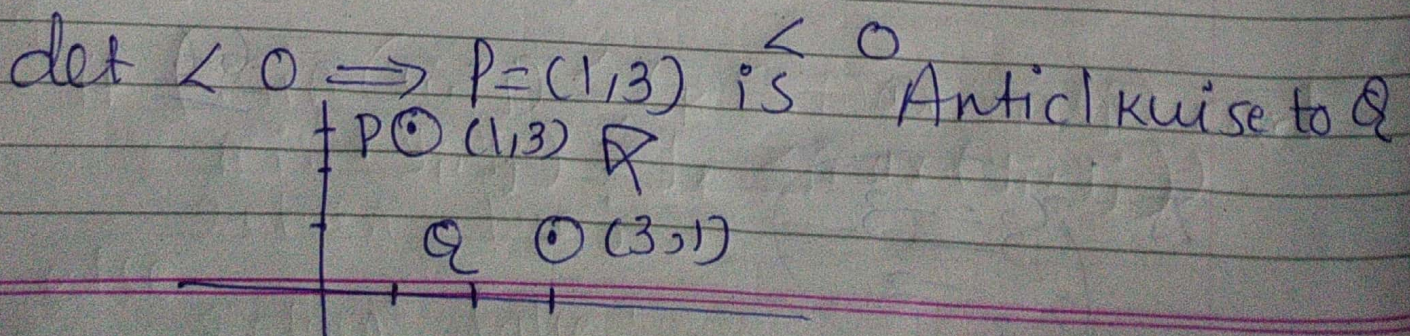 < 0
det < 0 ⟹ P=(1,3) is Anticlkwise to Q
P ⊙ (1,3)
Q ⊙ (3,1)